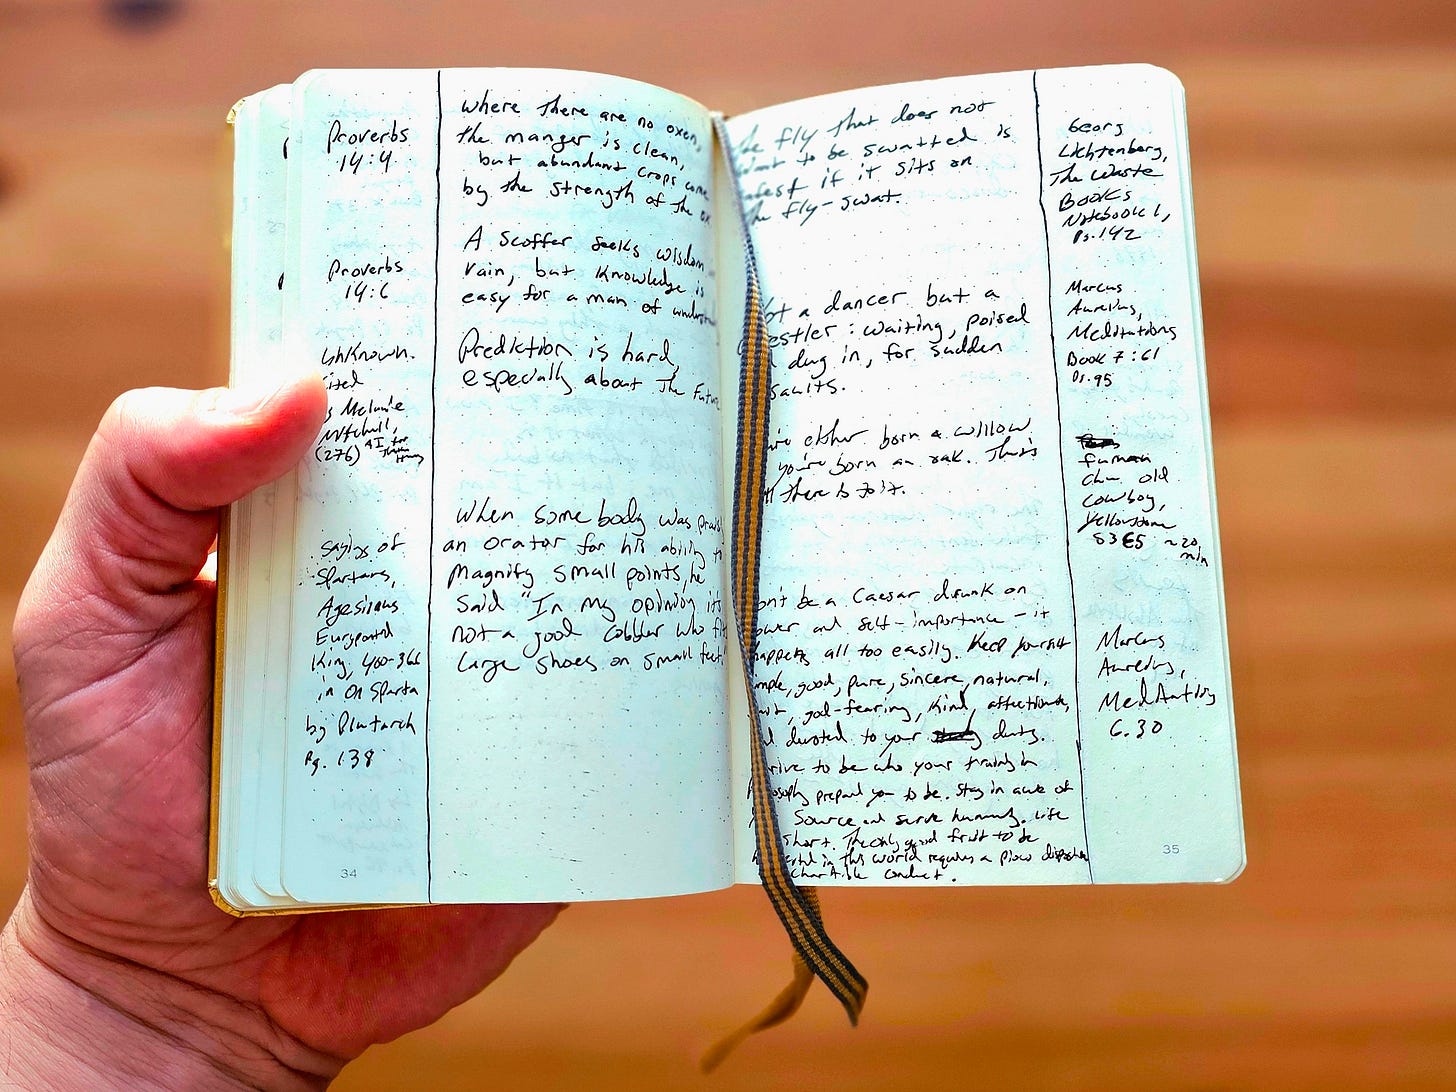 Proverbs
14:4
where there are no oxen,
the manger is clean,
but abundant crops come
by the strength of the ox
Proverbs
14:6
A scoffer seeks wisdom
vain, but knowledge is
easy for a man of
Unknown.
cited
Melanie
Mitchell,
(276) AI for
Prediction is hard,
especially about the future
Sayings of
Spartans,
Agesilaus
King, 400-
in On Sparta
by Plutarch
Pg. 138
When somebody was
an orator for his ability to
Magnify small points, he
said "In my opinion it's
not a good cobbler who
large shoes on small feet."
34
fly that does not
to be swatted is
if it sits on
fly-swat.
Georg
Lichtenberg,
The Waste
Books
Notebook 1,
Pg. 142
a dancer but a
: waiting, poised
dug in, for sudden
Marcus
Aurelius,
Meditations
Book 7:61
Pg. 95
either born a willow
you're born an oak. That's
there is to it.
old
cowboy,
Yellowstone
S3E5 ~20
min
be a Caesar drunk on
and self-importance - it
all too easily. Keep yourself
good, pure, sincere, natural,
god-fearing, kind, affectionate,
devoted to your duty.
to be who your training in
prepared you to be. Stay in awe of
Source and serve humanity. Life
short. The only good fruit to be
in this world requires a pious disposition
charitable conduct.
Marcus
Aurelius,
Meditations
6.30
35